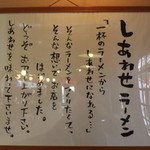 しあわせラーメン
「一杯のラーメンから
しあわせになれる…」
そんなラーメンを人々にくたくて。
そんな想いでこのお店を
はじめました。
どうぞ お召し上がり下さい。
しあわせを味わって下さいませ。